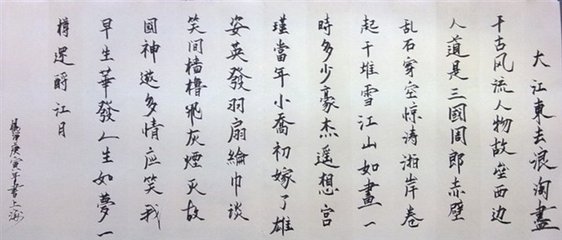 大江東去浪淘盡
千古風流人物故壘西边
人道是三國周郎赤壁
乱石穿空惊涛拍岸卷
起千堆雪江山如畫一
時多少豪杰遥想宫
瑾當年小喬初嫁了雄
姿英發羽扇綸巾谈
笑间樯櫓飛灰煙灭故
國神遊多情应笑我
早生華發人生如夢一
樽還酹江月
庚寅年書上海